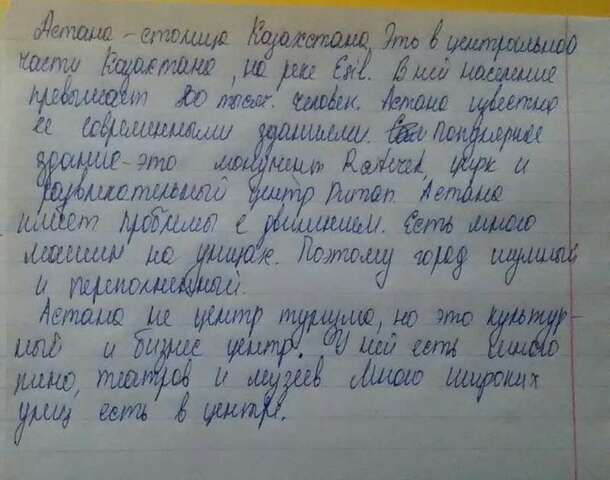 Астана - столица Казахстана, Это в центральной
части Казахтана, на реке Esil. В ней население
превышает 200 тысяч. человек. Астана известна
ее современными зданиями. Популярное
здание - это монумент Baiterek, цирк и
развлекательный центр Duman. Астана
имеет проблемы с движением. Есть много
машин на улицах. Поэтому город шумный
и переполненный.
Астана не центр туризма, но это культур-
ный и бизнес центр. У ней есть много
кино, театров и музеев Много широких
улиц есть в центре.